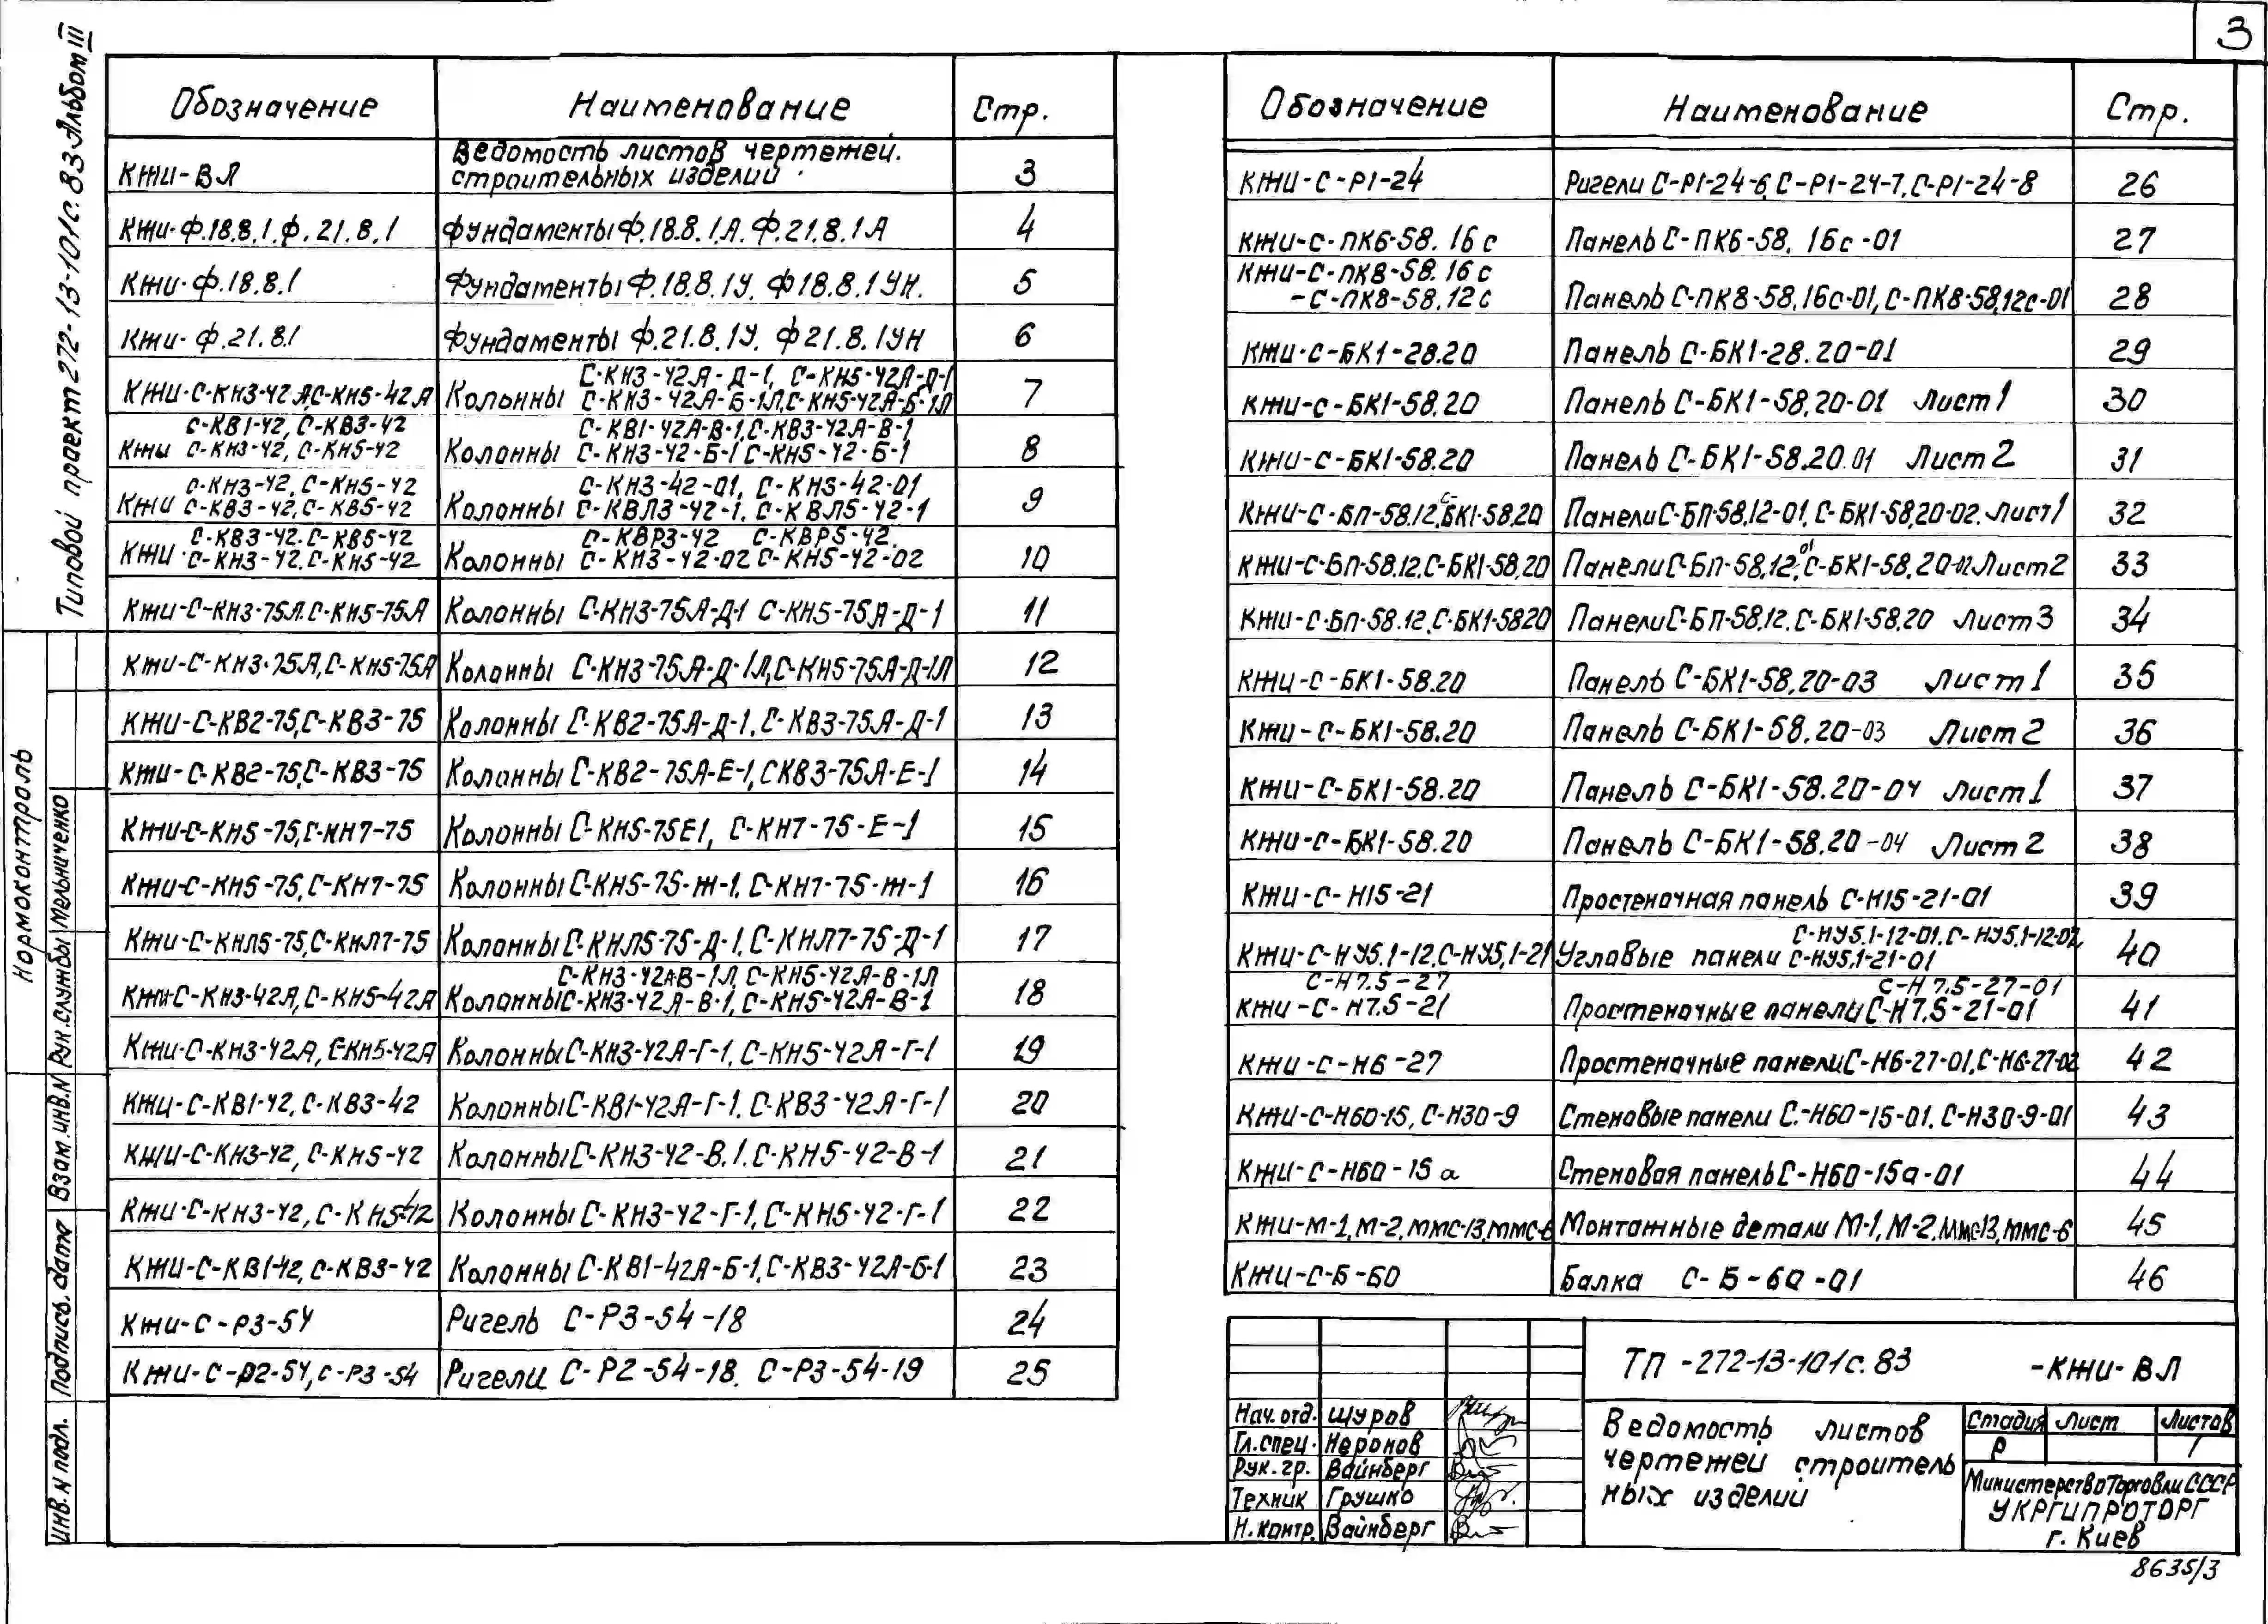 3
Типовой проект 272-13-101с.83 Альбом III
Обозначение Наименование Стр.
КЖИ-ВЛ Ведомость листов чертежей.
строительных изделий 3
КЖИ-Ф.18.8.1.Ф.21.8.1 Фундаменты Ф.18.8.1А. Ф.21.8.1А 4
КЖИ-Ф.18.8.1 Фундаменты Ф.18.8.1У. Ф18.8.1УН. 5
КЖИ-Ф.21.8.1 Фундаменты Ф.21.8.1У. Ф21.8.1УН 6
КЖИ-С-КН3-42А,С-КН5-42А Колонны С-КН3-42А-Д-1, С-КН5-42А-Д-1
С-КН3-42А-Б-1Л,С-КН5-42А-Б-1Л 7
С-КВ1-42, С-КВ3-42 С-КВ1-42А-В-1,С-КВ3-42А-В-1
КЖИ С-КН3-42, С-КН5-42 Колонны С-КН3-42-Б-1 С-КН5-42-Б-1 8
С-КН3-42, С-КН5-42 С-КН3-42-01, С-КН3-42-01
КЖИ С-КВ3-42, С-КВ5-42 Колонны С-КВЛ3-42-1. С-КВЛ5-42-1 9
С-КВ3-42. С-КВ5-42 С-КВР3-42 С-КВР5-42.
КЖИ С-КН3-42. С-КН5-42 Колонны С-КН3-42-02 С-КН5-42-02 10
КЖИ-С-КН3-75А. С-КН5-75А Колонны С-КН3-75А-Д-1 С-КН5-75А-Д-1 11
КЖИ-С-КН3-75А,С-КН5-75А Колонны С-КН3-75А-Д-1Л,С-КН5-75А-Д-1Л 12
КЖИ-С-КВ2-75,С-КВ3-75 Колонны С-КВ2-75А-Д-1. С-КВ3-75А-Д-1 13
КЖИ-С-КВ2-75,С-КВ3-75 Колонны С-КВ2-75А-Е-1,СКВ3-75А-Е-1 14
КЖИ-С-КН5-75,С-КН7-75 Колонны С-КН5-75Е1, С-КН7-75-Е-1 15
КЖИ-С-КН5-75,С-КН7-75 Колонны С-КН5-75-Ж-1. С-КН7-75-Ж-1 16
КЖИ-С-КНЛ5-75,С-КНЛ7-75 Колонны С-КНЛ5-75-Д-1. С-КНЛ7-75-Д-1 17
С-КН3-42АВ-1Л, С-КН5-42А-В-1Л
КЖИ-С-КН3-42А,С-КН5-42А Колонны С-КН3-42А-В-1, С-КН5-42А-В-1 18
КЖИ-С-КН3-42А, С-КН5-42А Колонны С-КН3-42А-Г-1. С-КН5-42А-Г-1 19
КЖИ-С-КВ1-42, С-КВ3-42 Колонны С-КВ1-42А-Г-1. С-КВ3-42А-Г-1 20
КЖИ-С-КН3-42, С-КН5-42 Колонны С-КН3-42-В.1. С-КН5-42-В-1 21
КЖИ-С-КН3-42, С-КН5-42 Колонны С-КН3-42-Г-1, С-КН5-42-Г-1 22
КЖИ-С-КВ1-42, С-КВ3-42 Колонны С-КВ1-42А-Б-1, С-КВ3-42А-Б-1 23
КЖИ-С-Р3-54 Ригель С-Р3-54-18 24
КЖИ-С-Р2-54, С-Р3-54 Ригели С-Р2-54-18. С-Р3-54-19 25
Обозначение Наименование Стр.
КЖИ-С-Р1-24 Ригели С-Р1-24-6, С-Р1-24-7, С-Р1-24-8 26
КЖИ-С-ПК6-58.16с Панель С-ПК6-58.16с-01 27
КЖИ-С-ПК8-58.16с
-С-ПК8-58.12с Панель С-ПК8-58.16с-01, С-ПК8-58.12с-01 28
КЖИ-С-БК1-28.20 Панель С-БК1-28.20-01 29
КЖИ-С-БК1-58.20 Панель С-БК1-58.20-01 Лист 1 30
КЖИ-С-БК1-58.20 Панель С-БК1-58.20.01 Лист 2 31
КЖИ-С-БП-58.12,С-БК1-58.20 Панели С-БП-58.12-01, С-БК1-58.20-02. Лист 1 32
КЖИ-С-БП-58.12.С-БК1-58.20 Панели С-БП-58.12-01, С-БК1-58.20-02 Лист 2 33
КЖИ-С-БП-58.12,С-БК1-5820 Панели С-БП-58.12. С-БК1-58.20 Лист 3 34
КЖИ-С-БК1-58.20 Панель С-БК1-58.20-03 Лист 1 35
КЖИ-С-БК1-58.20 Панель С-БК1-58.20-03 Лист 2 36
КЖИ-С-БК1-58.20 Панель С-БК1-58.20-04 Лист 1 37
КЖИ-С-БК1-58.20 Панель С-БК1-58.20-04 Лист 2 38
КЖИ-С-Н15-21 Простеночная панель С-Н15-21-01 39
С-НУ5.1-12-01. С-НУ5.1-12-02,
КЖИ-С-НУ5.1-12,С-НУ5,1-21 Угловые панели С-НУ5,1-21-01 40
С-Н7.5-27 С-Н7.5-27-01
КЖИ-С-Н7.5-21 Простеночные панели С-Н7.5-21-01 41
КЖИ-С-Н6-27 Простеночные панели С-Н6-27-01,С-Н6-27-02 42
КЖИ-С-Н60-15, С-Н30-9 Стеновые панели С-Н60-15-01. С-Н30-9-01 43
КЖИ-С-Н60-15а Стеновая панель С-Н60-15а-01 44
КЖИ-М-1,М-2,ММС-13,ММС-6 Монтажные детали М-1, М-2, ММС-13, ММС-6 45
КЖИ-С-Б-60 Балка С-Б-60-01 46
Нормоконтроль
Рук.службы Мельниченко
Взам.инв.N
Подпись. дата
Инв.N подл.
ТП-272-13-101с.83 -КЖИ-ВЛ
Нач.отд. Щуров
Гл.спец. Неронов
Рук.гр. Вайнберг
Техник Грушко
Н.контр. Вайнберг
Ведомость листов
чертежей строитель
ных изделий
Стадия Лист Листов
Р 1
Министерство Торговли СССР
УКРГИПРОТОРГ
г. Киев
8635/3